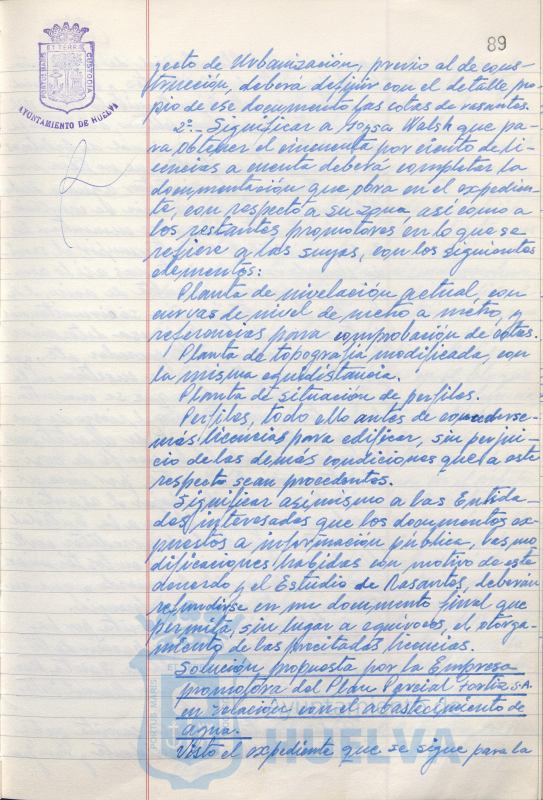 89
PORTUS MARIS ET TERRAE CUSTODIA
AYUNTAMIENTO DE HUELVA
yecto de Urbanización, previo al de cons-
trucción, deberá definir con el detalle pro-
pio de ese documento las cotas de rasantes.
2º.- Significar a Walsh que pa-
ra obtener el cincuenta por ciento de li-
cencias a cuenta deberá completar la
documentación que obra en el expedien-
te, con respecto a su zona, así como a
los restantes promotores en lo que se
refiere a las suyas, con los siguientes
elementos:
Planta de nivelación actual, con
curvas de nivel de metro a metro, y
referencias para comprobación de cotas.
Planta de topografía modificada, con
la misma equidistancia.
Planta de situación de perfiles.
Perfiles, todo ello antes de concederse
más licencias para edificar, sin perjui-
cio de las demás condiciones que a este
respecto sean procedentes.
Significar asimismo a las Entida-
des interesadas que los documentos ex-
puestos a información pública, las mo-
dificaciones habidas con motivo de este
acuerdo y el Estudio de Rasantes, deberán
refundirse en un documento final que
permita, sin lugar a equívocos, el otorga-
miento de las precitadas licencias.
Solución propuesta por la Empresa
promotora del Plan Parcial Fortiz S.A.
en relación con el abastecimiento de
agua.
Visto el expediente que se sigue para la
HUELVA